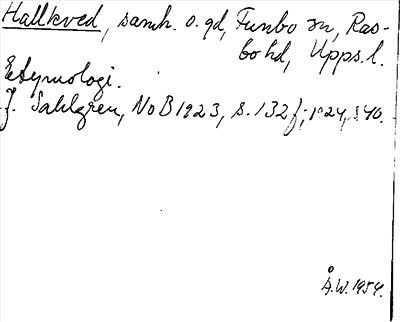 Hallkved, samh. o. gd, Funbo sn, Ras-
bo hd, Upps. l.
Etymologi.
J. Sahlgren, NoB 1923, s. 132 f; 1924, s. 40.
Å.W. 1954.